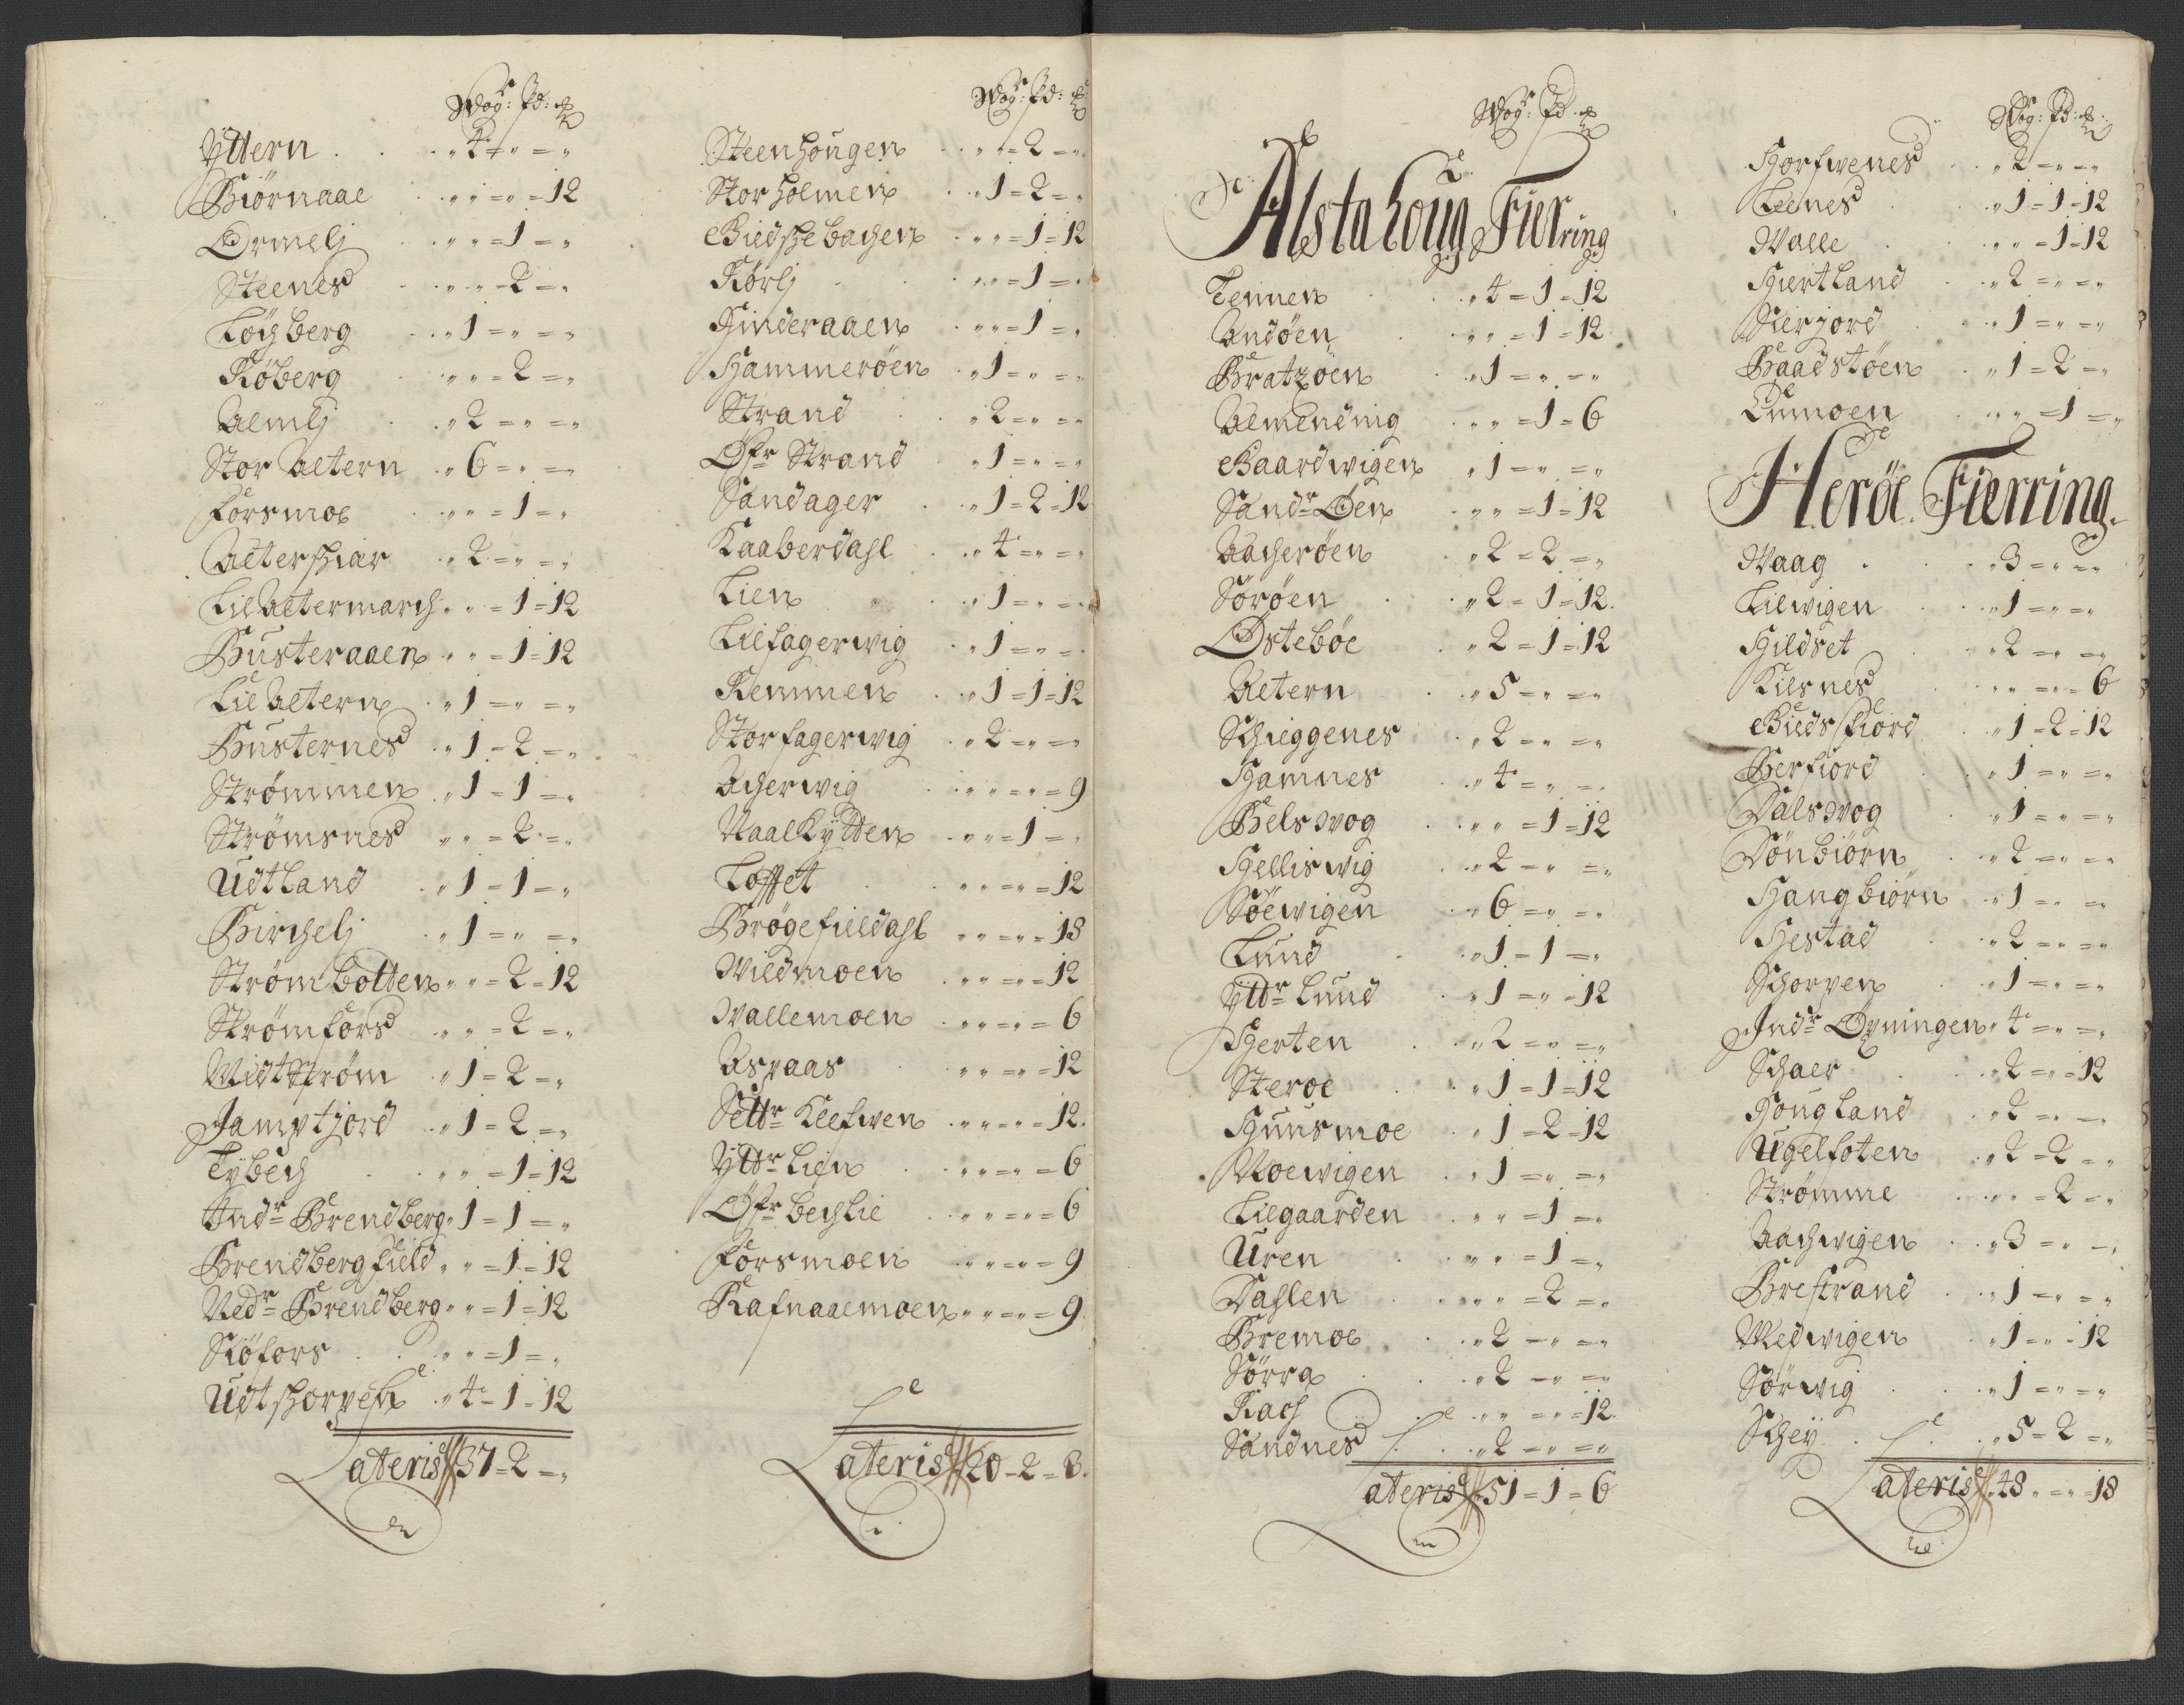 Wog: Pd: ℔
Yttern . . „ 4 = „ = „
Biørnaae . . „ „ = „ = 12
Ormelj . . „ „ = 1 = „
Steenes . . „ „ = 2 = „
Løchberg . . „ 1 = „ = „
Røberg . . „ „ = 2 = „
Aemlj . . „ 2 = „ = „
Stor Aetern . „ 6 = „ = „
Forsmoe . . „ „ = 1 = „
Aeterschiær . „ 2 = „ = „
Lil Aetermarch . „ „ = 1 = 12
Husteraaen . „ „ = 1 = 12
Lil Aetern . „ 1 = „ = „
Husternes . „ 1 = 2 = „
Strømmen . „ 1 = 1 = „
Strømsnes . „ „ = 2 = „
Udtland . „ 1 = 1 = „
Birchelj . „ 1 = „ = „
Strømbotten . „ „ = 2 = 12
Strømfors . „ „ = 2 = „
Midtstrøm . „ 1 = 2 = „
Jamptjord . „ 1 = 2 = „
Tÿbech . . „ „ = 1 = 12
Indr Brendberg „ 1 = 1 = „
Brendbergfield „ „ = 1 = 12
Nedr Brendberg „ „ = 1 = 12
Siøfors . . „ „ = 1 = „
Udtschorpen . „ 4 = 1 = 12
Lateris 37 = 2 = „
Wog: Pd: ℔
Steenhougen . „ „ = 2 = „
Storholmen . „ 1 = 2 = „
Biedschebachen . „ „ = 1 = 12
Rørlj . . „ „ = 1 = „
Hinderaaen . „ „ = 1 = „
Hammerøen . „ 1 = „ = „
Strand . . „ 2 = „ = „
Øfr Strand . „ 1 = „ = „
Sandager . „ 1 = 2 = 12
Kaaberdahl . „ 4 = „ = „
Lien . . „ 1 = „ = „
Lilfagerwig . „ 1 = „ = „
Remmen . „ 1 = 1 = 12
Storfagerwig . „ 2 = „ = „
Acherwig . „ „ = „ = 9
Naalkÿtten . „ „ = 1 = „
Loffet . . „ „ = „ = 12
Brøgefieldahl . „ „ = „ = 18
Wildmoen . „ „ = „ = 12
Wallemoen . „ „ = „ = 6
Aspaas . . „ „ = „ = 12
Settr Kleefwen . „ „ = „ = 12
Yttr Lien . „ „ = „ = 6
Øfr Bechlie . „ „ = „ = 6
Forsmoen . „ „ = „ = 9
Rafnaaemoen . „ „ = „ = 9
Lateris 20 = 2 = 3.
Wog: Pd: ℔
Alstahoug Fierring
Tennen . . „ 4 = 1 = 12
Andøen . . „ „ = 1 = 12
Bratzøen . „ 1 = „ = „
Aemending . „ „ = 1 = 6
Baardwigen . „ 1 = „ = „
Sandr Øen . „ „ = 1 = 12
Aacherøen . „ 2 = 2 = „
Sørøen . . „ 2 = 1 = 12
Østebøe . „ 2 = 1 = 12
Aetern . . „ 5 = „ = „
Schieggenes . „ 2 = „ = „
Hamnes . „ 4 = „ = „
Belswog . „ „ = 1 = 12
Helliswig . „ 2 = „ = „
Søewigen . „ 6 = „ = „
Lund . . „ 1 = 1 = „
Yttr Lund . „ 1 = „ = 12
Hierten . . „ 2 = „ = „
Steroe . . „ 1 = 1 = 12
Huusmoe . „ 1 = 2 = 12
Moewigen . „ 1 = „ = „
Lilgaarden . „ „ = 1 = „
Uren . . „ „ = 1 = „
Dahlen . . „ „ = 2 = „
Bremoe . „ 2 = „ = „
Sørra . . „ 2 = „ = „
Rach . . „ „ = „ = 12
Sandnes . „ 2 = „ = „
Lateris 51 = 1 = 6
Wog: Pd: ℔
Horfwenes . „ 2 = „ = „
Leenes . „ 1 = 1 = 12
Walle . . „ „ = 1 = 12
Hiertland . „ 2 = „ = „
Sierjord . „ 1 = „ = „
Baadstøen . „ 1 = 2 = „
Lumoen . „ „ = 1 = „
Herøe Fierring.
Waag . . „ 3 = „ = „
Lilwigen . „ 1 = „ = „
Hildset . „ 2 = „ = „
Kilsnes . „ „ = „ = 6
Biedsfiord . „ 1 = 2 = 12
Berfiord . „ 1 = „ = „
Dalswog . „ 1 = „ = „
Dønbiørn . „ 2 = „ = „
Hangbiørn . „ 1 = „ = „
Hestad . „ 2 = „ = „
Schorpen . „ 1 = „ = „
Indr Øpningen „ 4 = „ = „
Schaer . „ 2 = „ = 12
Hougland . „ 2 = „ = „
Ugelfoten . „ 2 = 2 = „
Strømme . „ „ = 2 = „
Aachwigen . „ 3 = „ = „
Brestrand . „ 1 = „ = „
Medwigen . „ 1 = „ = 12
Sørwig . „ 1 = „ = „
Schey . . „ 5 = 2 = „
Lateris 48 = „ = 18